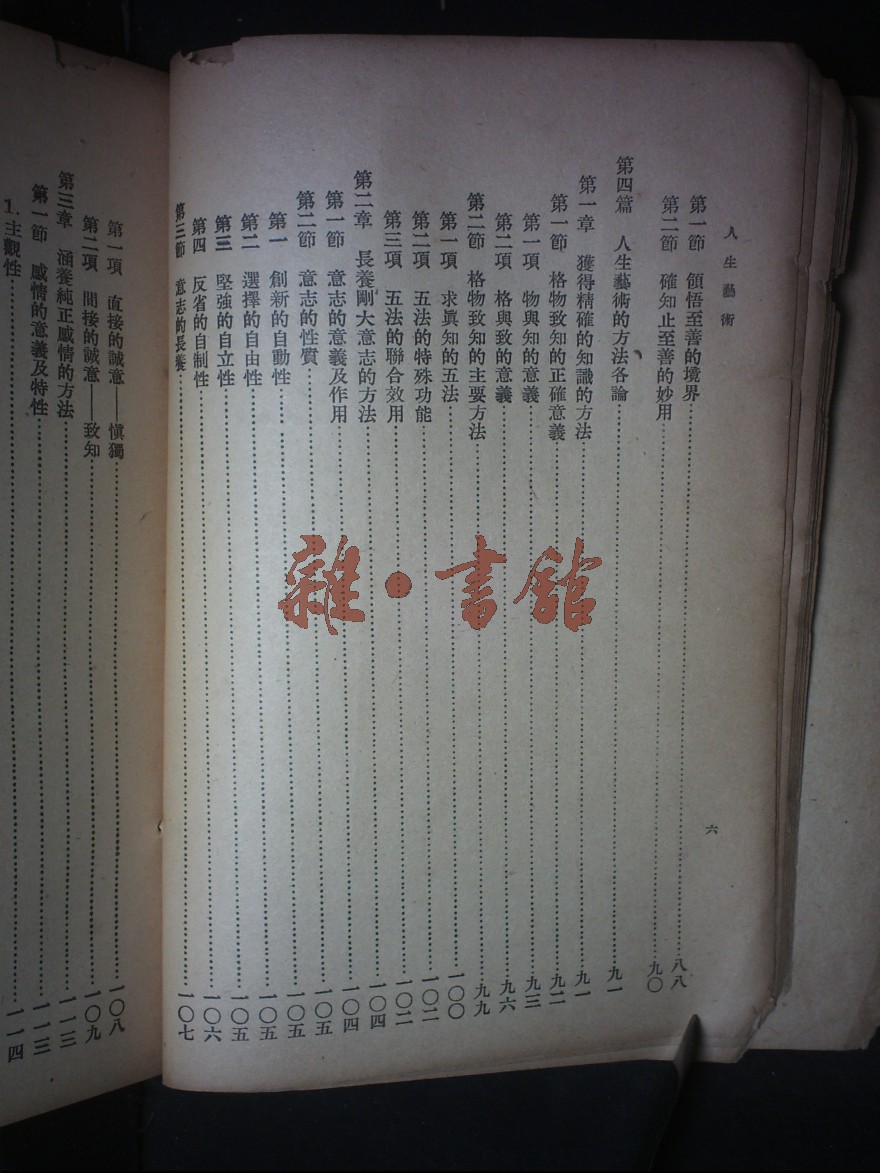 人生藝術
六
第一節 領悟至善的境界 八八
第二節 確知止至善的妙用 九〇
第四篇 人生藝術的方法各論 九一
第一章 獲得精確的知識的方法 九一
第一節 格物致知的正確意義 九二
第一項 物與知的意義 九三
第二項 格與致的意義 九六
第二節 格物致知的主要方法 九九
第一項 求眞知的五法 一〇〇
第二項 五法的特殊功能 一〇二
第三項 五法的聯合效用 一〇二
第二章 長養剛大意志的方法 一〇四
第一節 意志的意義及作用 一〇四
第二節 意志的性質 一〇五
第一 創新的自動性 一〇五
第二 選擇的自由性 一〇五
第三 堅強的自立性 一〇五
第四 反省的自制性 一〇六
第三節 意志的長養 一〇七
第一項 直接的誠意——愼獨 一〇八
第二項 間接的誠意——致知 一〇九
第三章 涵養純正感情的方法 一一三
第一節 感情的意義及特性 一一三
1.主觀性 一一四
雜·書館